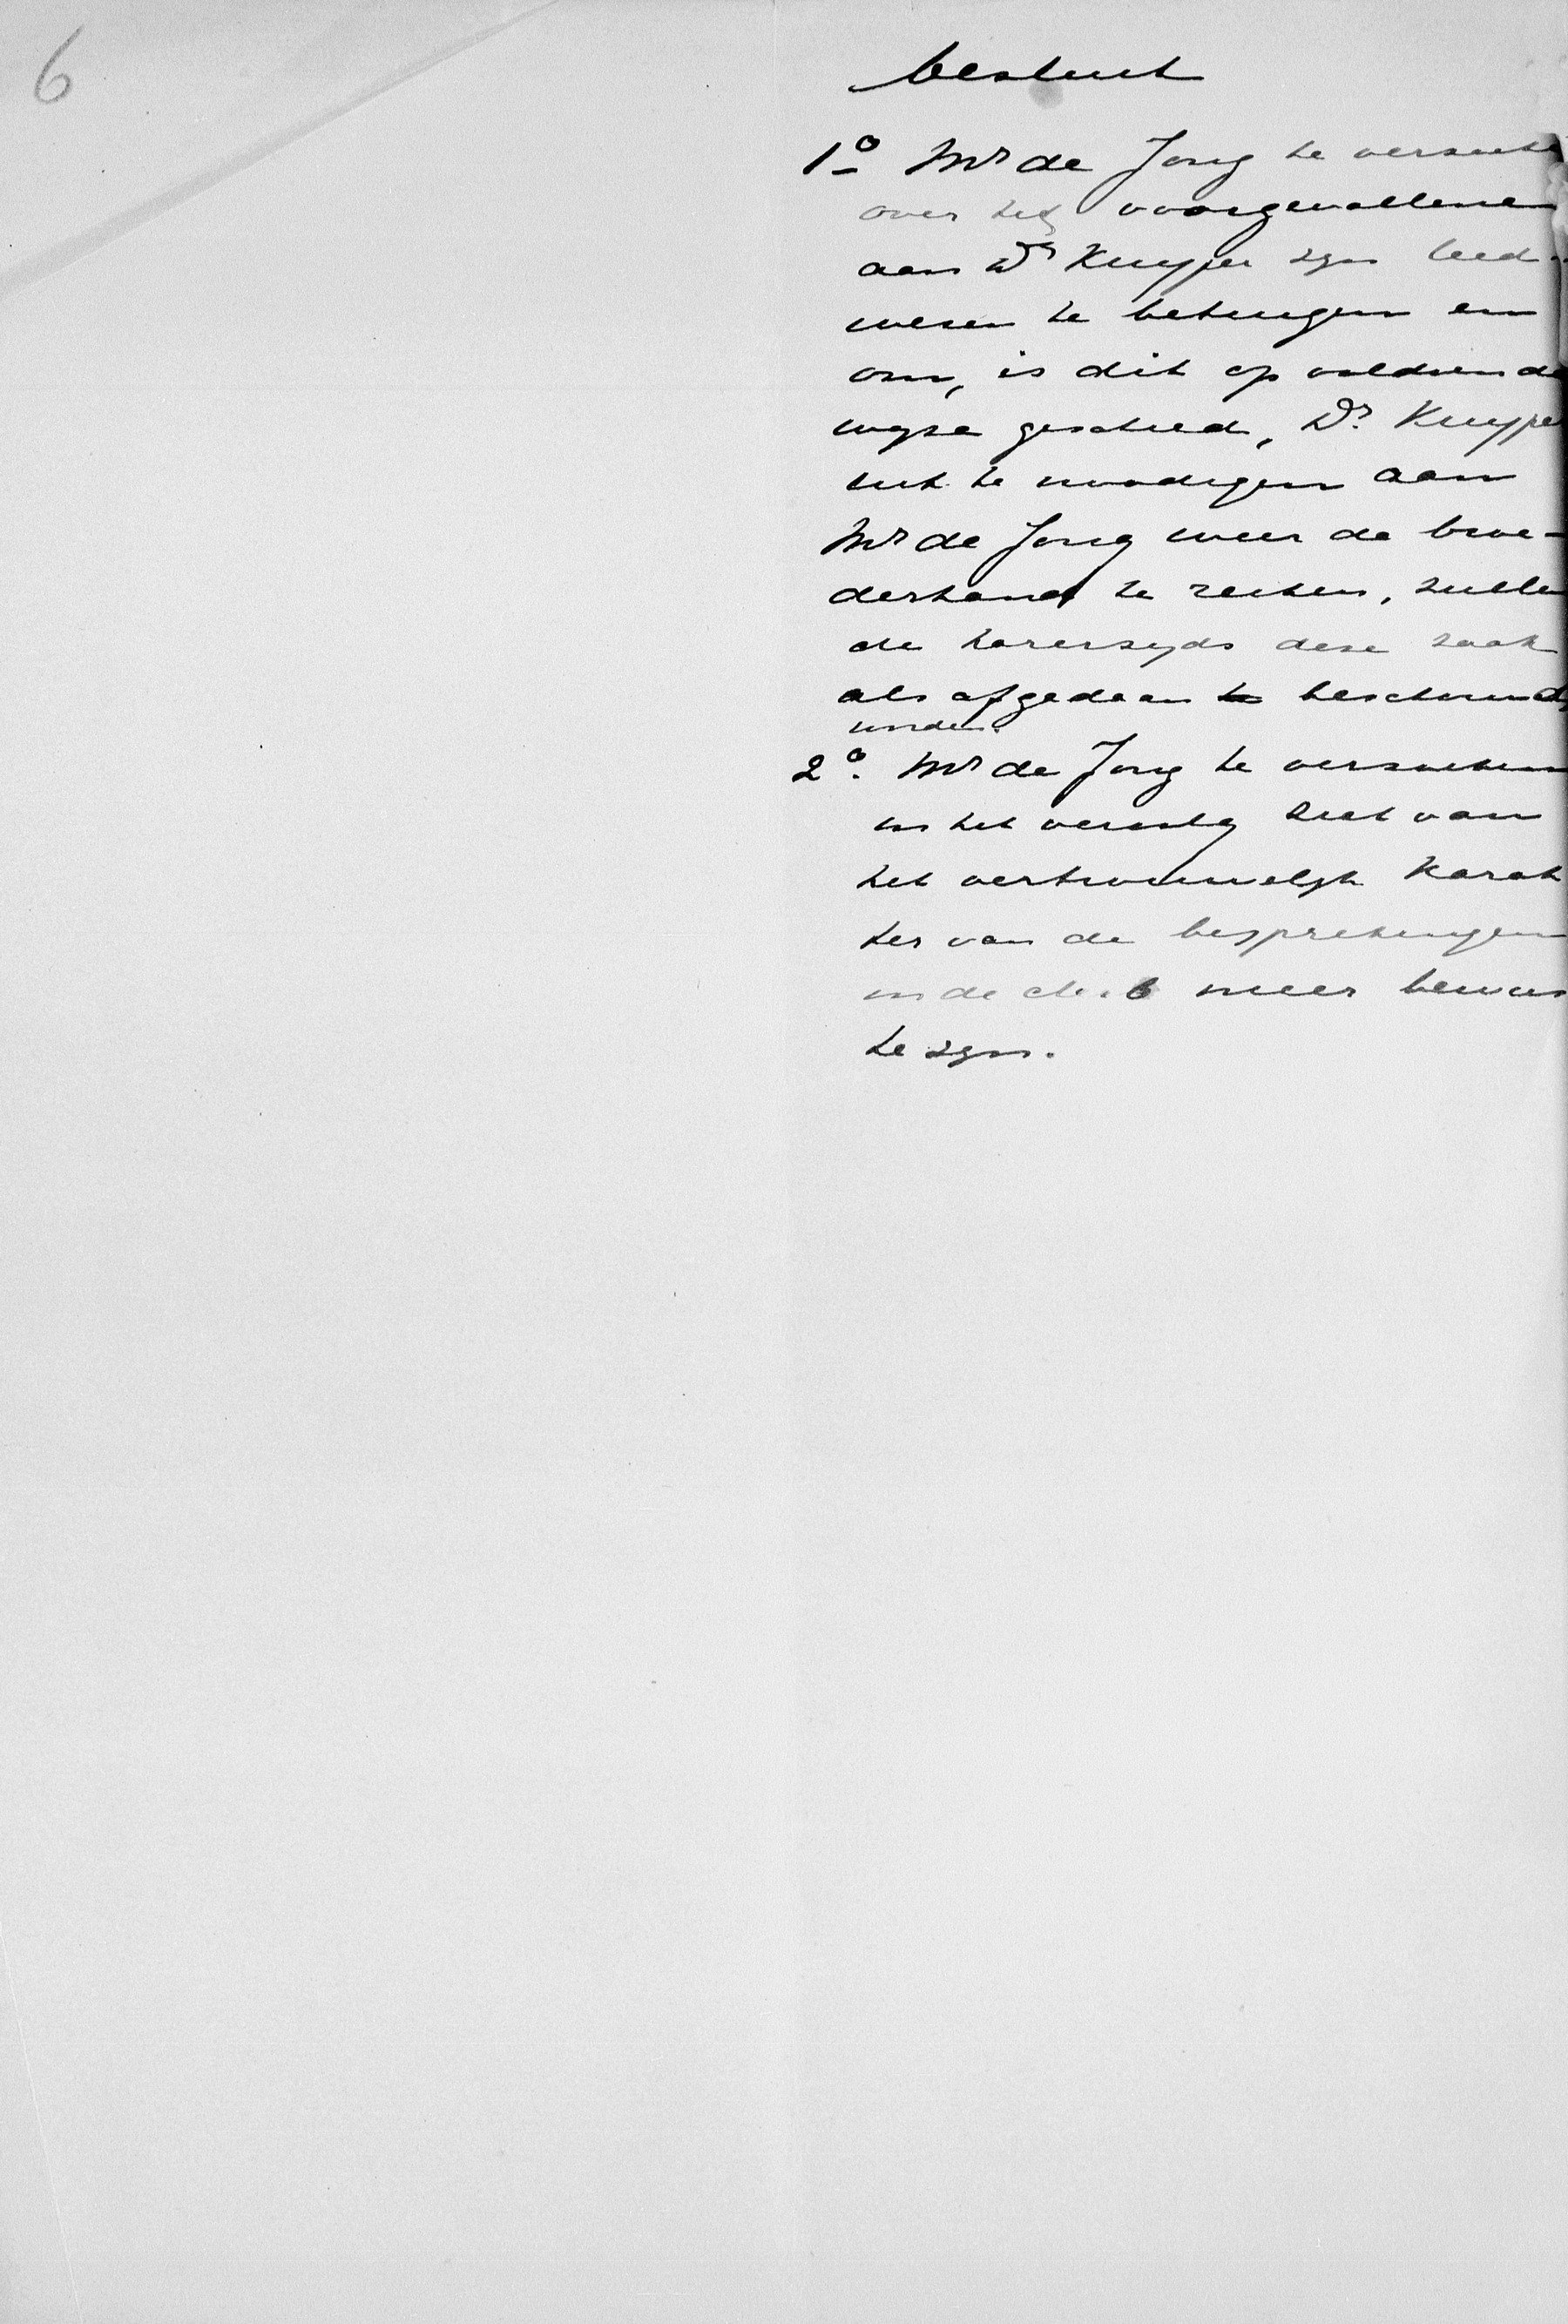 6
besluit
1o Mr de Jong te verzoeke
over het voorgevallene
aan Dr Kuyper zyn leed-
wezen te betuigen en
om, is dit op voldoende
wyze geschied, Dr. Kuype
uit te noodigen aan
Mr de Jong weer de broe-
derhand te reiken, zullen
de harerzyds deze zaak
als afgedaan te beschouwd
worden.
2o. Mr de Jong te verzoeken
in het vervolg zich van
het vertrouwelyk karak
ter van de besprekingen
in de club meer bewus
te zyn.